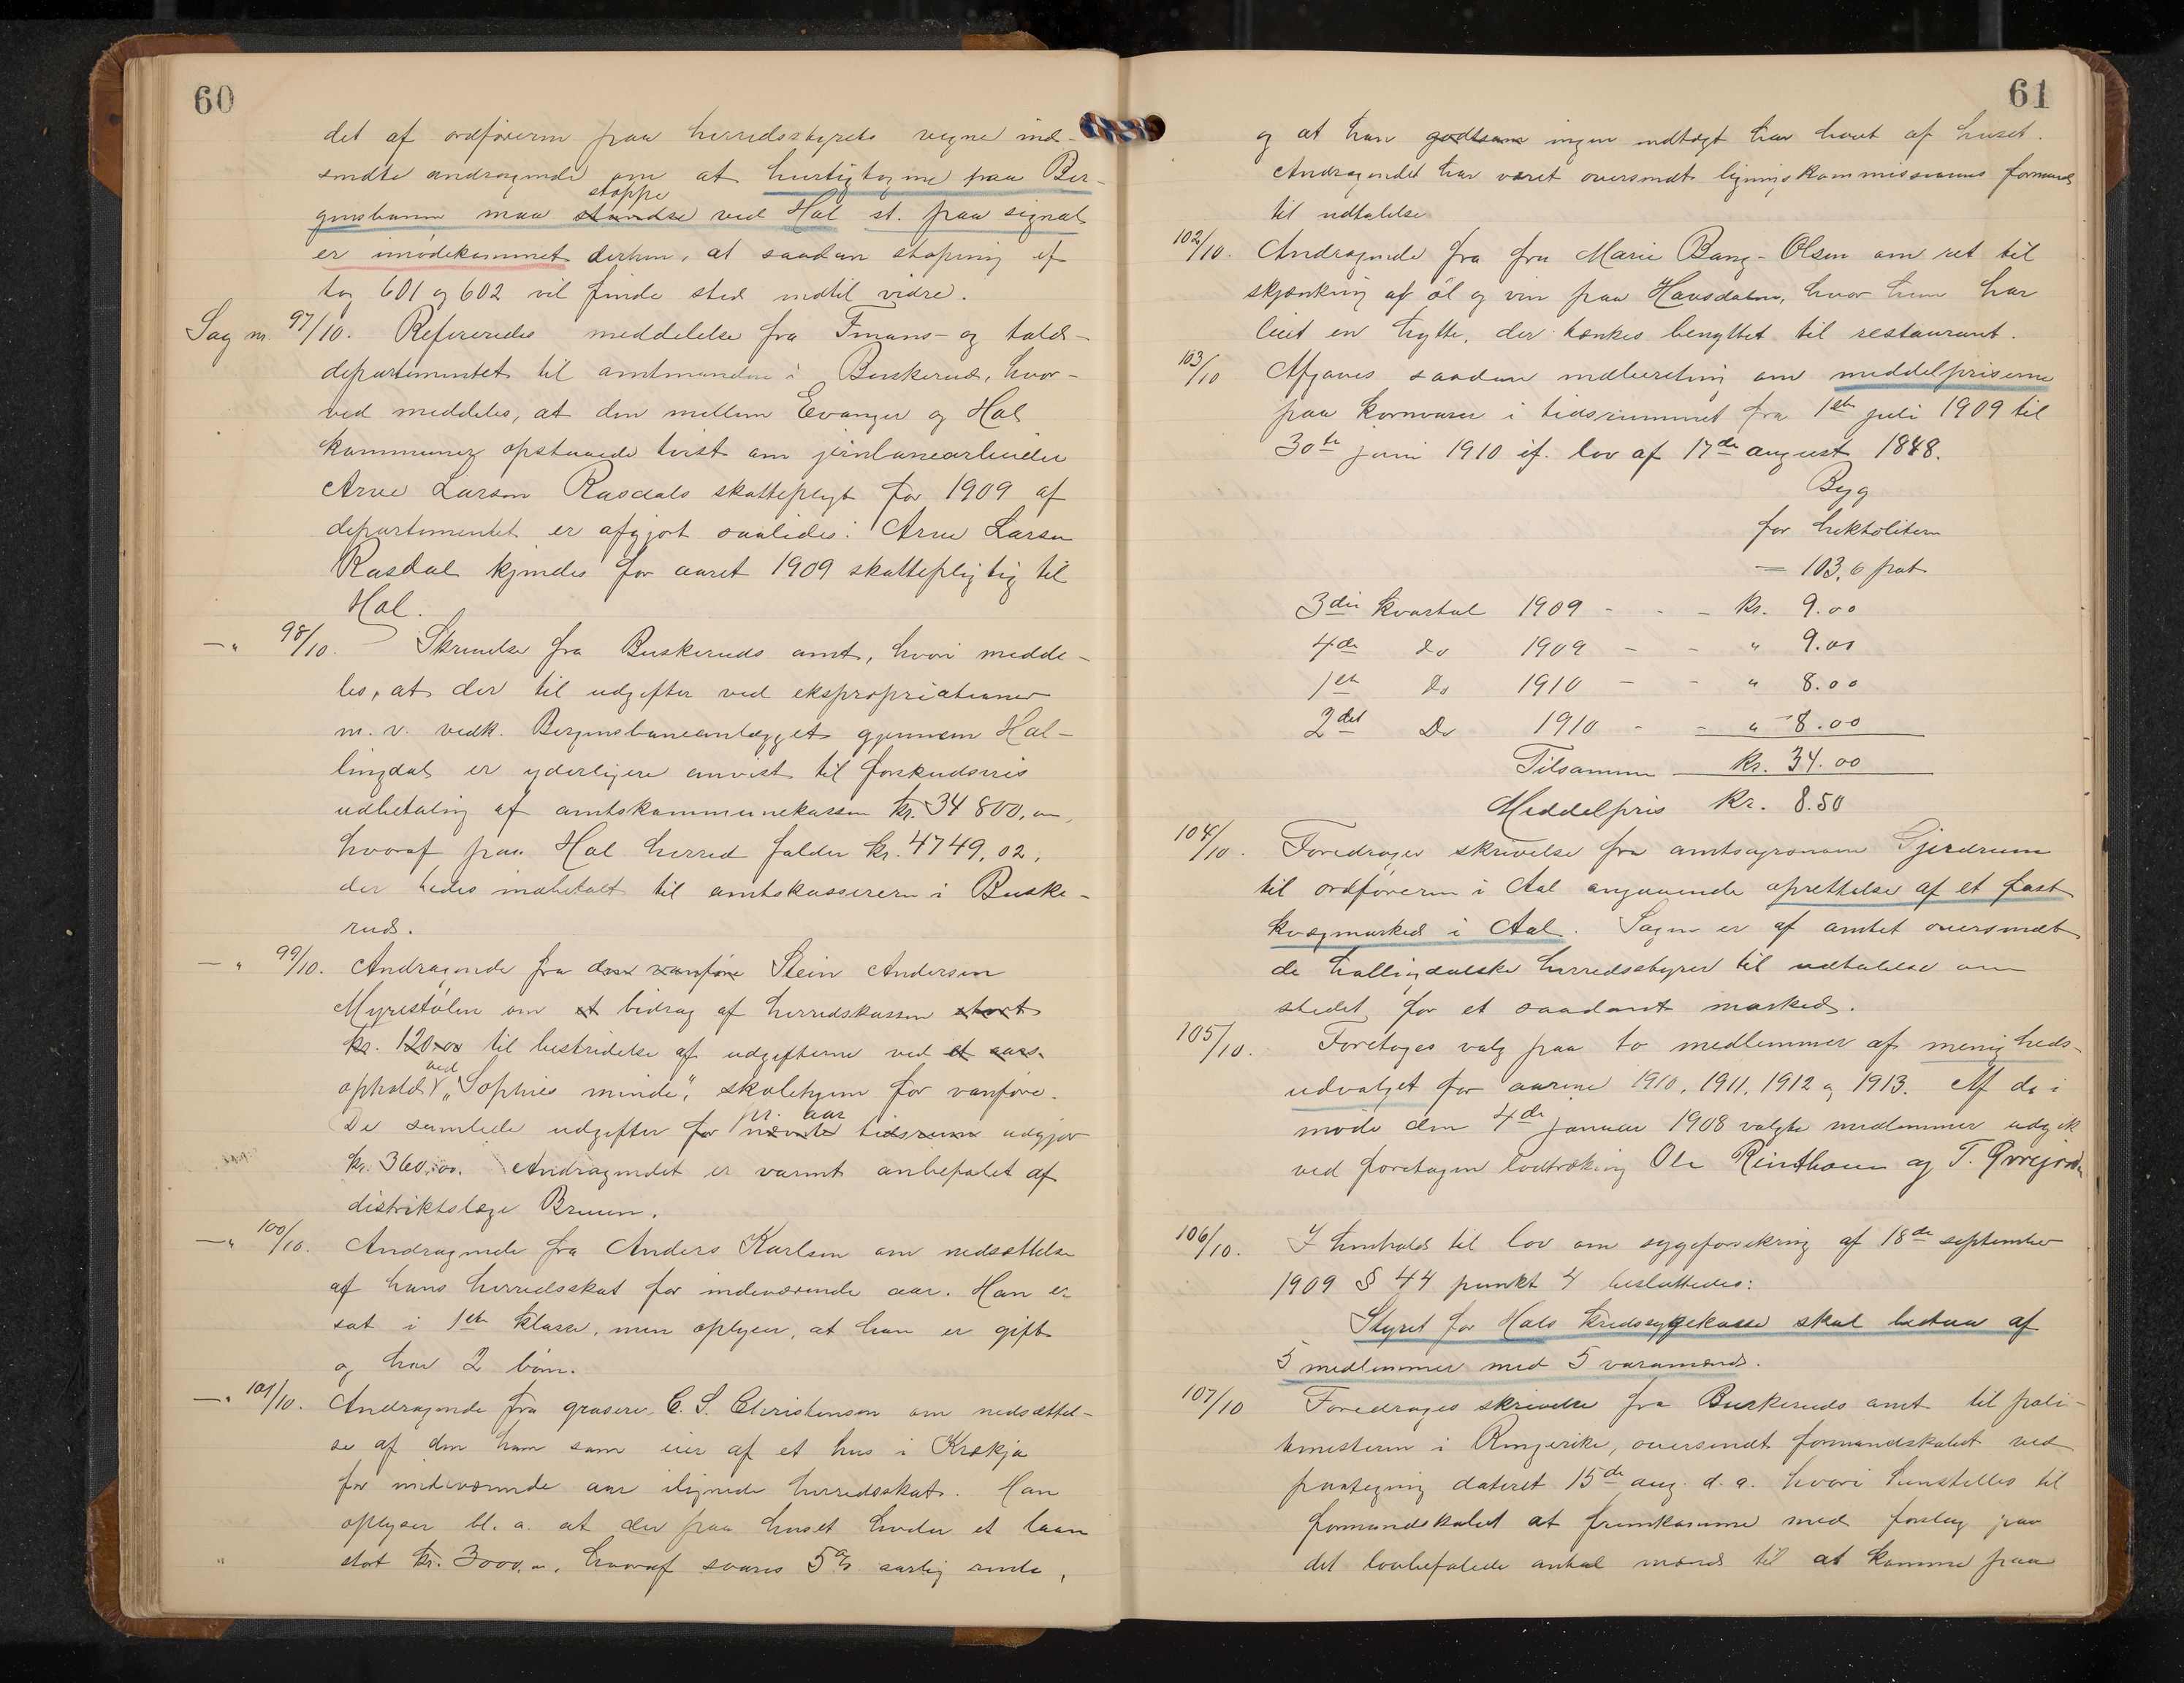 60
det af ordføreren paa herredsstyrets vegne ind-
sendte andragende om at hurtigtogene paa Ber-
stoppe
gensbanen maa standse ved Hol st. paa signal
er imødekommet derhen, at saadan stopning af
tog 601 og 602 vil finde sted indtil vidre.
Sag nr. 97/10. Refereredes meddelelse fra Finans- og told-
departementet til amtmanden i Buskerud, hvor-
ved meddeles, at den mellem Evanger og Hol
kommuner opstaaede tvist om jernbanearbeider
Arne Larsen Rasdals skattepligt for 1909 af
departementet er afgjort saaledes: Arne Larsen
Rasdal kjendes for aaret 1909 skattepligtig til
Hol.
— " 98/10. Skrivelse fra Buskeruds amt, hvori medde-
les, at der til udgifter ved ekspropriationer
m. v. vedk. Bergensbaneanlægget gjennem Hal-
lingdal er yderligere anvist til forskudsvis
udbetaling af amtskommunekassen kr. 34 800,00,
hvoraf paa Hol herred falder kr. 4749,02,
der bedes indbetalt til amtskassereren i Buske-
rud.
— " 99/10. Andragende fra den vanføre Stein Andersen
Myrestølen om et bidrag af herredskassen stort
kr. 120.00 til bestridelse af udgifterne ved et aars-
ved
ophold "Sophies minde", skolehjem for vanføre.
pr. aar
De samlede udgifter for nævnte tidsrum udgjør
kr. 360,00. Andragendet er varmt anbefalet af
distriktslæge Bruun.
— " 100/10. Andragende fra Anders Karlsen om nedsættelse
af hans herredsskat for indeværende aar. Han er
sat i 1ste klasse, men oplyser, at han er gift
og har 2 børn.
— " 101/10. Andragende fra grosere C. S. Christensen om nedsættel-
se af den ham som eier af et hus i Krækja
for indeværende aar ilignede herredsskat. Han
oplyser bl. a. at der paa huset hviler et laan
stort kr. 3000,00, hvoraf svares 5% aarlig rente,
61
og at han godtsom ingen indtægt har havt af huset.
Andragendet har været oversendt ligningskommissionens formand
til udtalelse
102/10. Andragende fra fru Marie Bang-Olsen om ret til
skjænkning af øl og vin paa Haugsdalen, hvor hun har
leiet en hytte, der tænkes benyttet til restaurant.
103/10 Afgaves saadan indberetning om meddelpriserne
paa kornvarer i tidsrummet fra 1ste juli 1909 til
30te juni 1910 jf. lov af 17de august 1848.
Byg
for hektoliteren
= 103,6 pot
3die kvartal 1909 - - - kr. 9.00
4de do 1909 - - " 9.00
1ste do 1910 - - " 8.00
2det Do 1910 - - " 8.00
Tilsammen kr. 34.00
Meddelpris kr. 8.50
104/10. Foredrages skrivelse fra amtsagronom Gjerdrum
til ordføreren i Aal angaaende oprettelse af et fast
kvægmarked i Aal. Sagen er af amtet oversendt
de hallingdalske herredsstyrer til udtalelse om
stedet for et saadant marked.
105/10. Foretoges valg paa to medlemmer af menigheds-
udvalget for aarene 1910, 1911, 1912 og 1913. Af de i
møde den 4de januar 1908 valgte medlemmer udgik
ved foretagen lodtrækning Ole Reinthon og T.
106/10. I henhold til lov om sygeforsikring af 18de september
1909 § 44 punkt 4 besluttedes:
Styret for Hols kredssygekasse skal bestaa af
5 medlemmer med 5 varamænd.
107/10 Foredrages skrivelse fra Buskeruds amt til poli-
timesteren i Ringerike, oversendt formandskabet ved
paategning dateret 15de aug. d. a. hvori henstilles til
formandskabet at fremkomme med forslag paa
det lovbefalede antal mænd til at komme paa